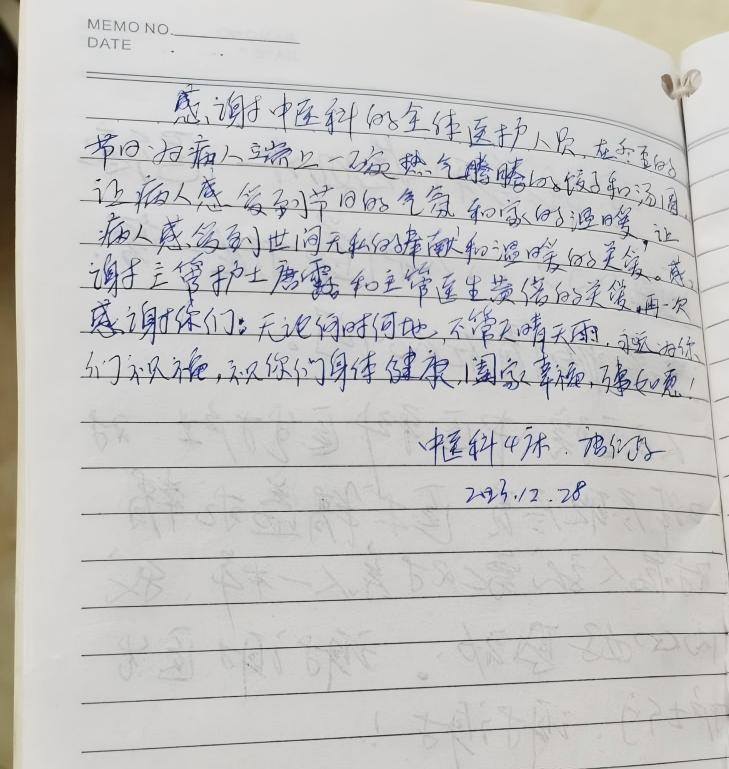 MEMO NO.
DATE . .
感谢中医科的全体医护人员,在冬至的
节日为病人端上一碗热气腾腾的饺子和汤圆
让病人感受到节日的气氛和家的温暖,让
病人感受到世间无私的奉献和温暖的关爱。感
谢主管护士唐露和主管医生黄倩的关爱,再一次
感谢你们:无论何时何地,不管天晴天雨,永远为你
们祝福,祝你们身体健康,阖家幸福,万事如意!
中医科4床.
2023.12.28